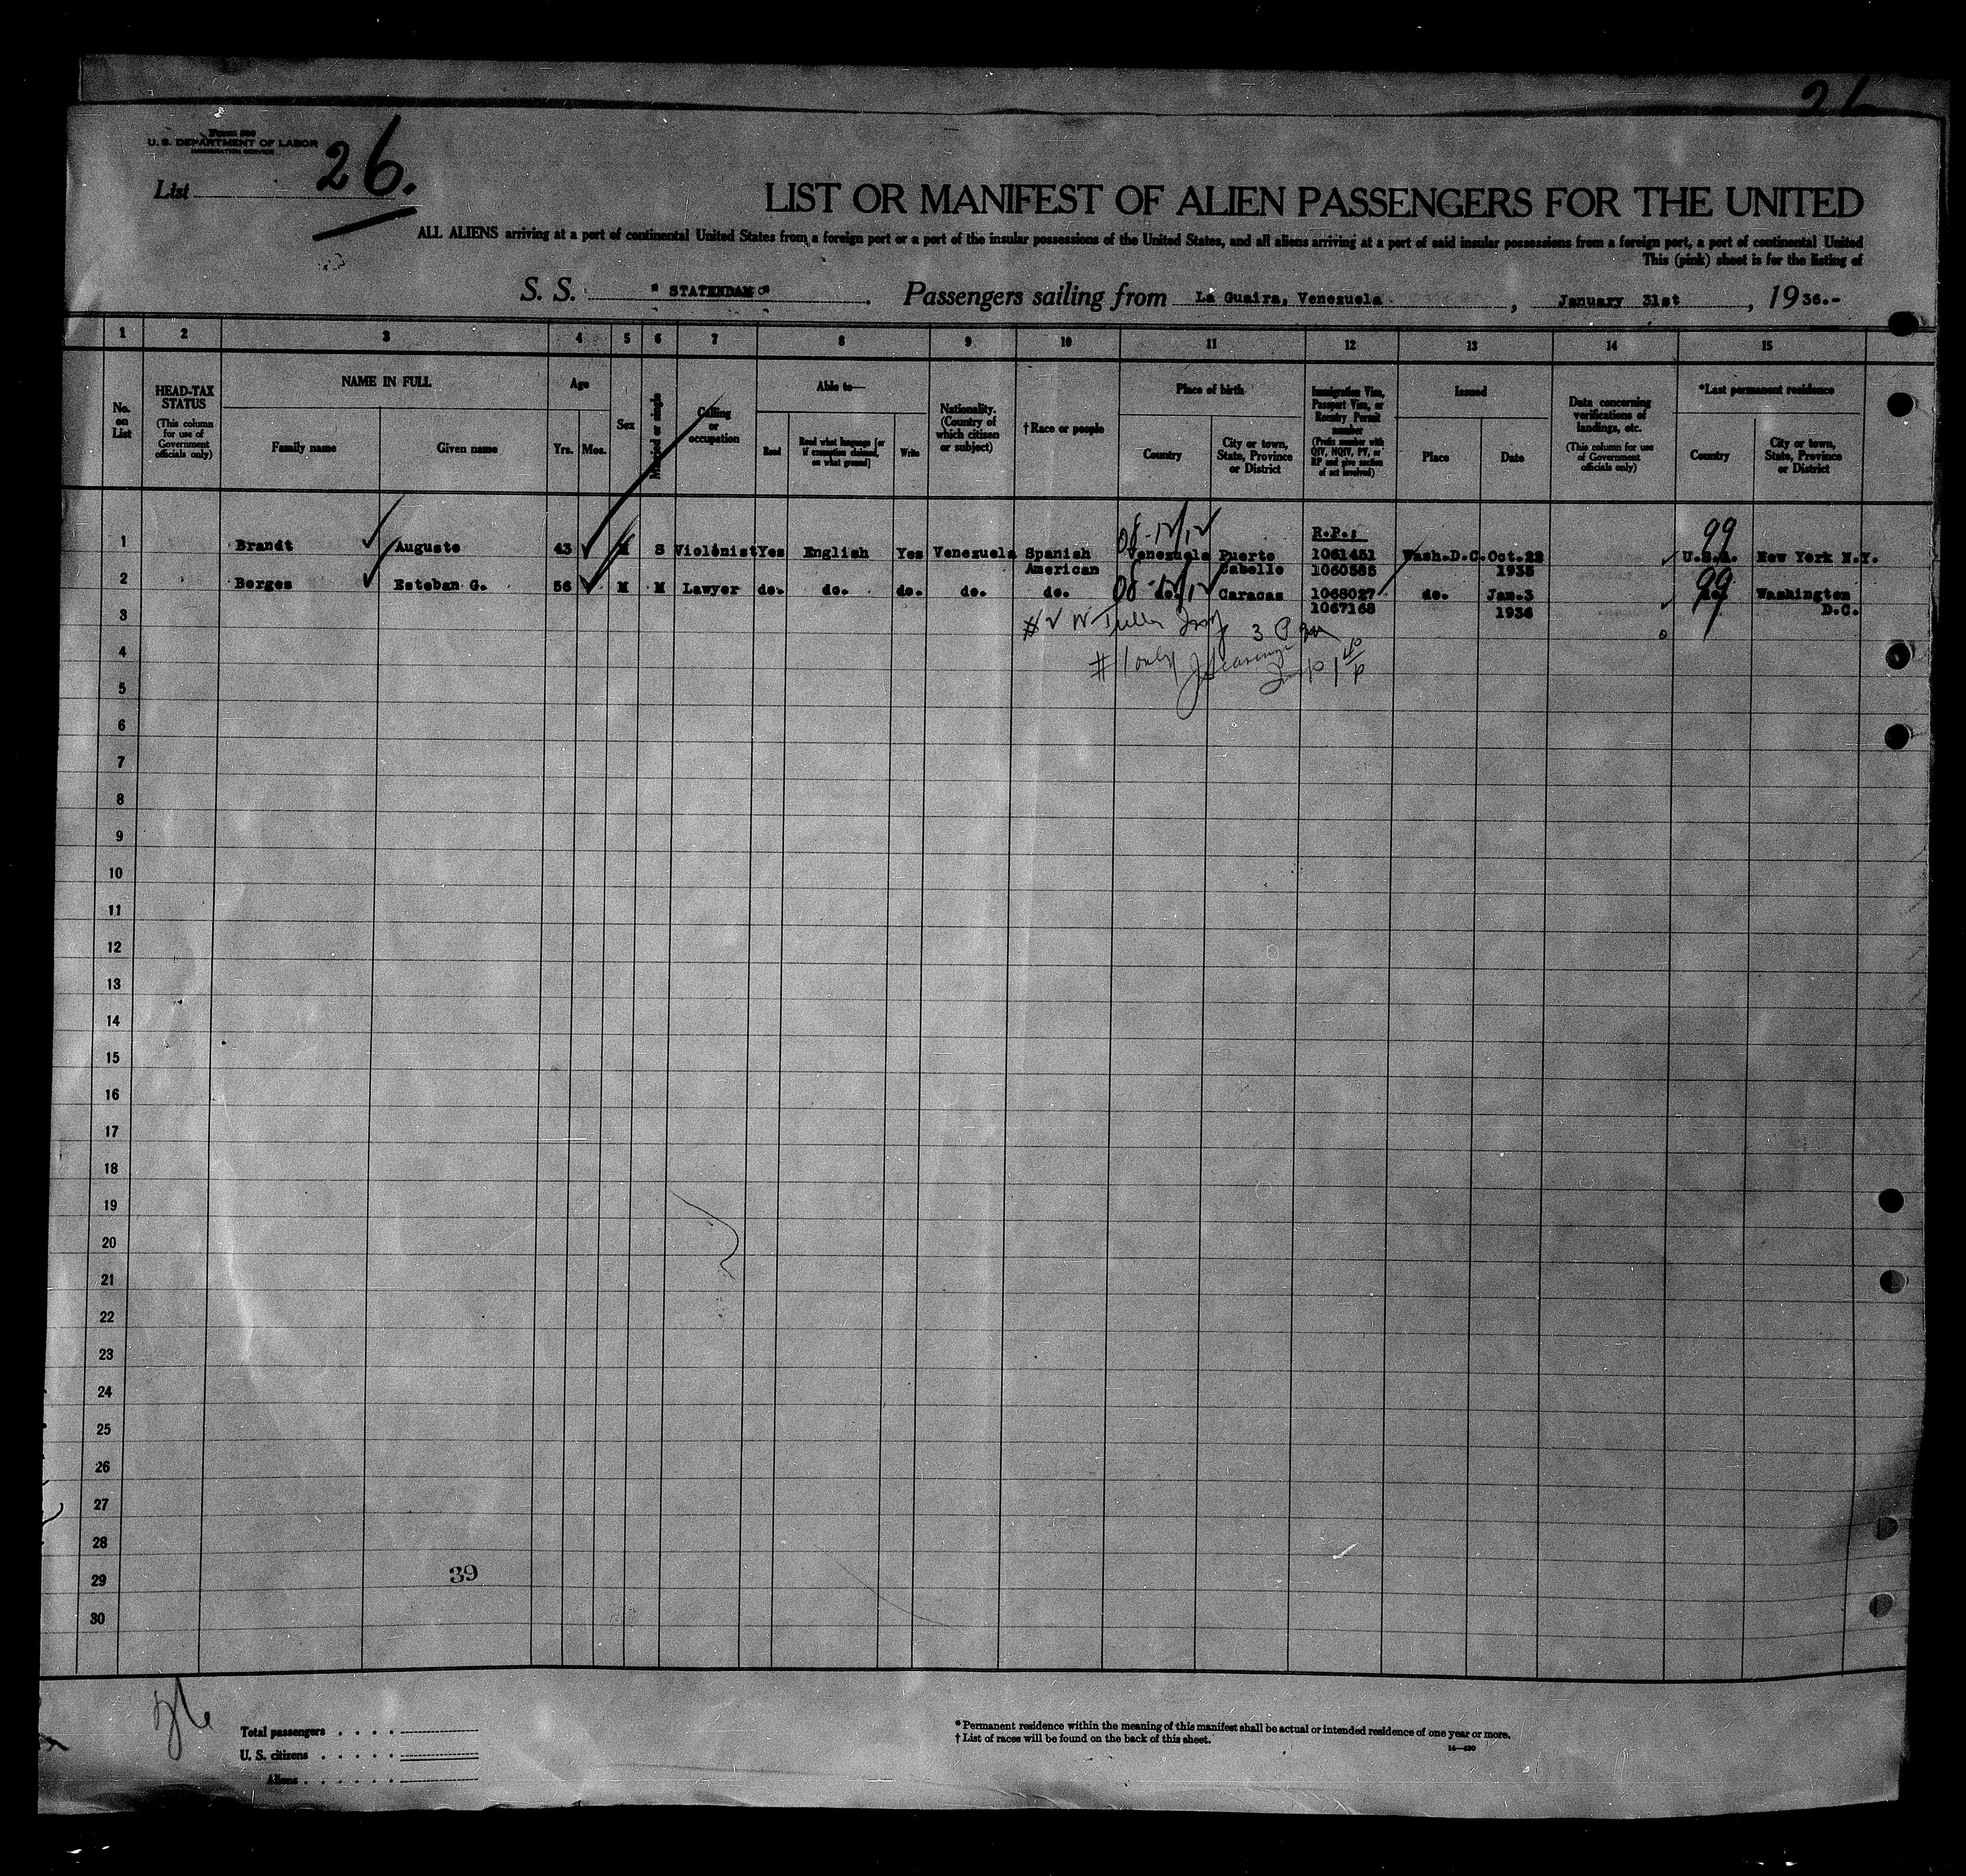 26
Form 500
U. S. DEPARTMENT OF LABOR
IMMIGRATION SERVICE
List 26.
LIST OR MANIFEST OF ALIEN PASSENGERS FOR THE UNITED
ALL ALIENS arriving at a port of continental United States from a foreign port or a port of the insular possessions of the United States, and all aliens arriving at a port of said insular possessions from a foreign port, a port of continental United
This (pink) sheet is for the listing of
S. S. "STATENDAM" . Passengers sailing from La Guaira, Venezuela , January 31st , 1936.-
1 2 3 4 5 6 7 8 9 10 11 12 13 14 15
No. on List
HEAD-TAX STATUS (This column for use of Government officials only)
NAME IN FULL Family name Given name
Age Yrs. Mos.
Sex
Married or single
Calling or occupation
Able to— Read Read what language [or if exemption claimed, on what ground] Write
Nationality. (Country of which citizen or subject)
†Race or people
Place of birth Country City or town, State, Province or District
Immigration Visa, Passport Visa, or Reentry Permit number (Prefix number with QIV, NQIV, PV, or RP and give section of act involved)
Issued Place Date
Data concerning verifications of landings, etc. (This column for use of Government officials only)
*Last permanent residence Country City or town, State, Province or District
R.P.: 99
1 Brandt Augusto 43 M S Violinist Yes English Yes Venezuela Spanish Venezuela Puerto 1061451 Wash.D.C. Oct.22 U.S.A. New York N.Y.
American Cabello 1060585 1935
99
2 Borges Esteban G. 56 M M Lawyer do. do. do. do. do. do. Caracas 1068027 do. Jan.3 do. Washington
1067168 1936 D.C.
3
4
5
6
7
8
9
10
11
12
13
14
15
16
17
18
19
20
21
22
23
24
25
26
27
28
29
30
39
Total passengers
U. S. citizens
Aliens
* Permanent residence within the meaning of this manifest shall be actual or intended residence of one year or more.
† List of races will be found on the back of this sheet.
14—430